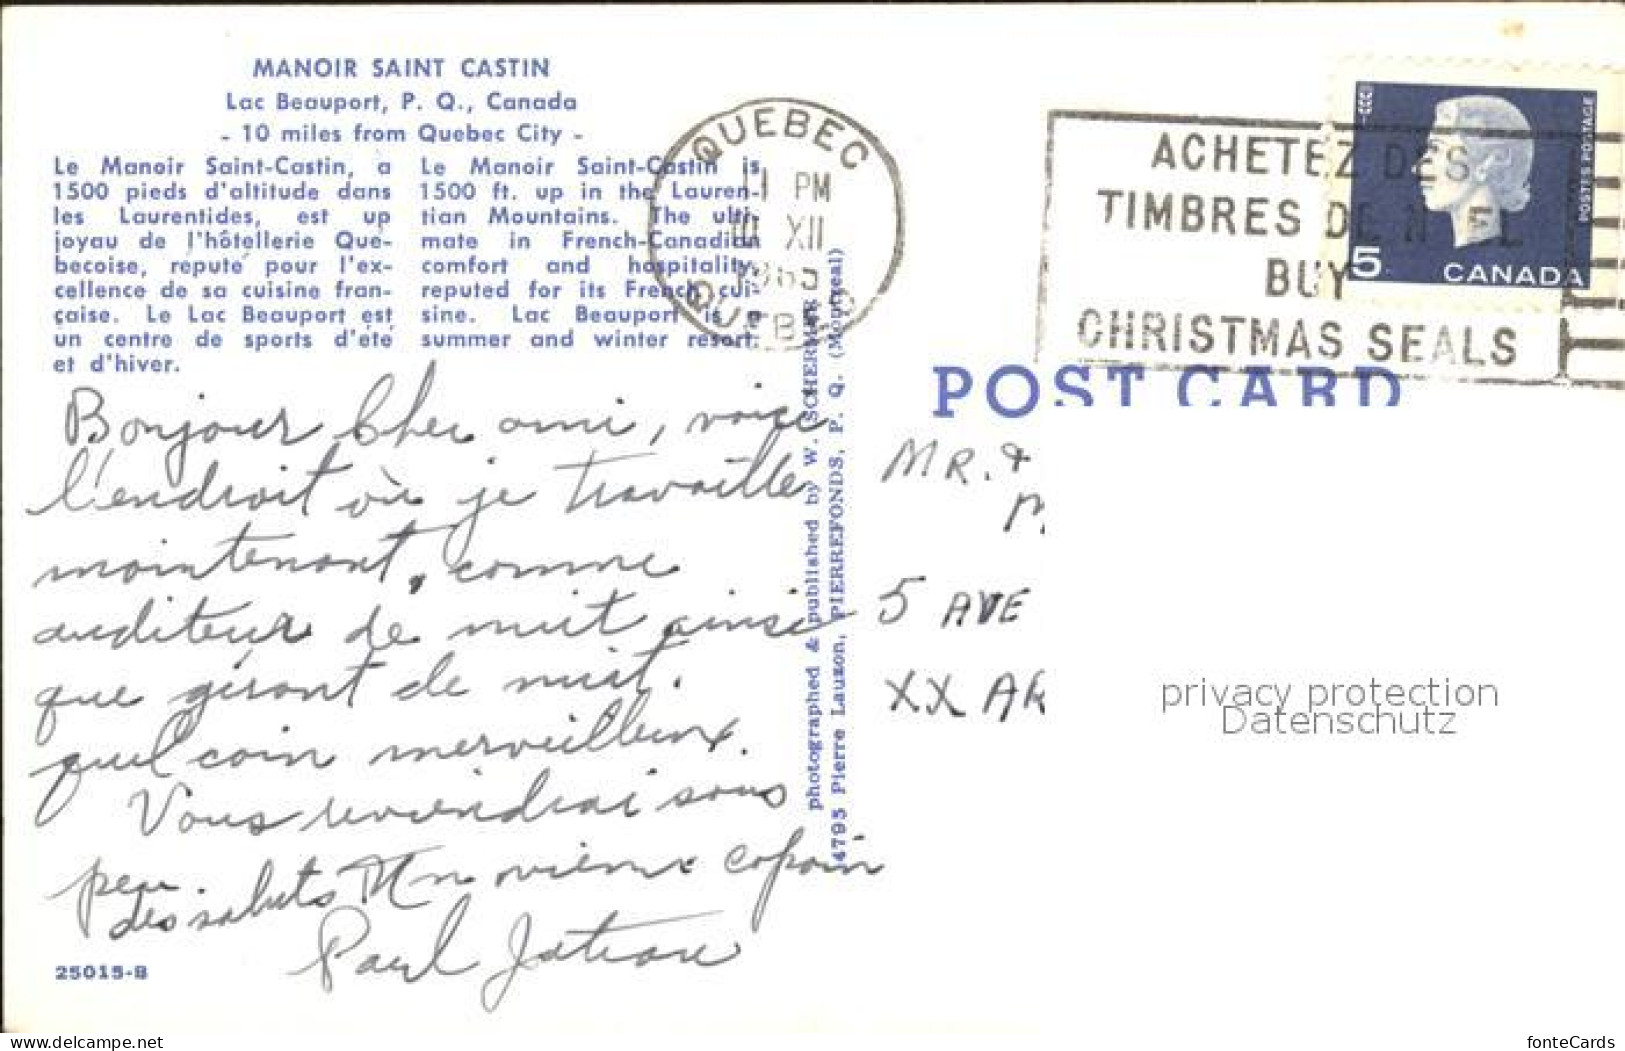 MANOIR SAINT CASTIN
Lac Beauport, P. Q., Canada
- 10 miles from Quebec City -
Le Manoir Saint-Castin, a
1500 pieds d'altitude dans
les Laurentides, est up
joyau de l'hôtellerie Qué-
becoise, réputé pour l'ex-
cellence de sa cuisine fran-
çaise. Le Lac Beauport est
un centre de sports d'été
et d'hiver.
Le Manoir Saint-Castin is
1500 ft. up in the Lauren-
tian Mountains. The ulti-
mate in French-Canadian
comfort and hospitality,
reputed for its French cui-
sine. Lac Beauport is a
summer and winter resort.
Bonjour Cher ami, voici
l'endroit où je travaille
maintenant, comme
auditeur de nuit ainsi
que gérant de nuit.
quel coin merveilleux.
Vous reviendrai sous
peu.
des saluts Un vieux copain
Paul
25015-B
photographed & published by W. SCHERMER
14795 Pierre Lauzon, PIERREFONDS, P. Q. (Montreal)
QUEBEC
PM
XII
QUEBEC
ACHETEZ DES
TIMBRES DE NOEL
BUY
CHRISTMAS SEALS
POSTES POSTAGE
5 CANADA
POST CARD
MR. &
M.
5 AVE
XX AR
privacy protection
Datenschutz
www.delcampe.net
fonteCards